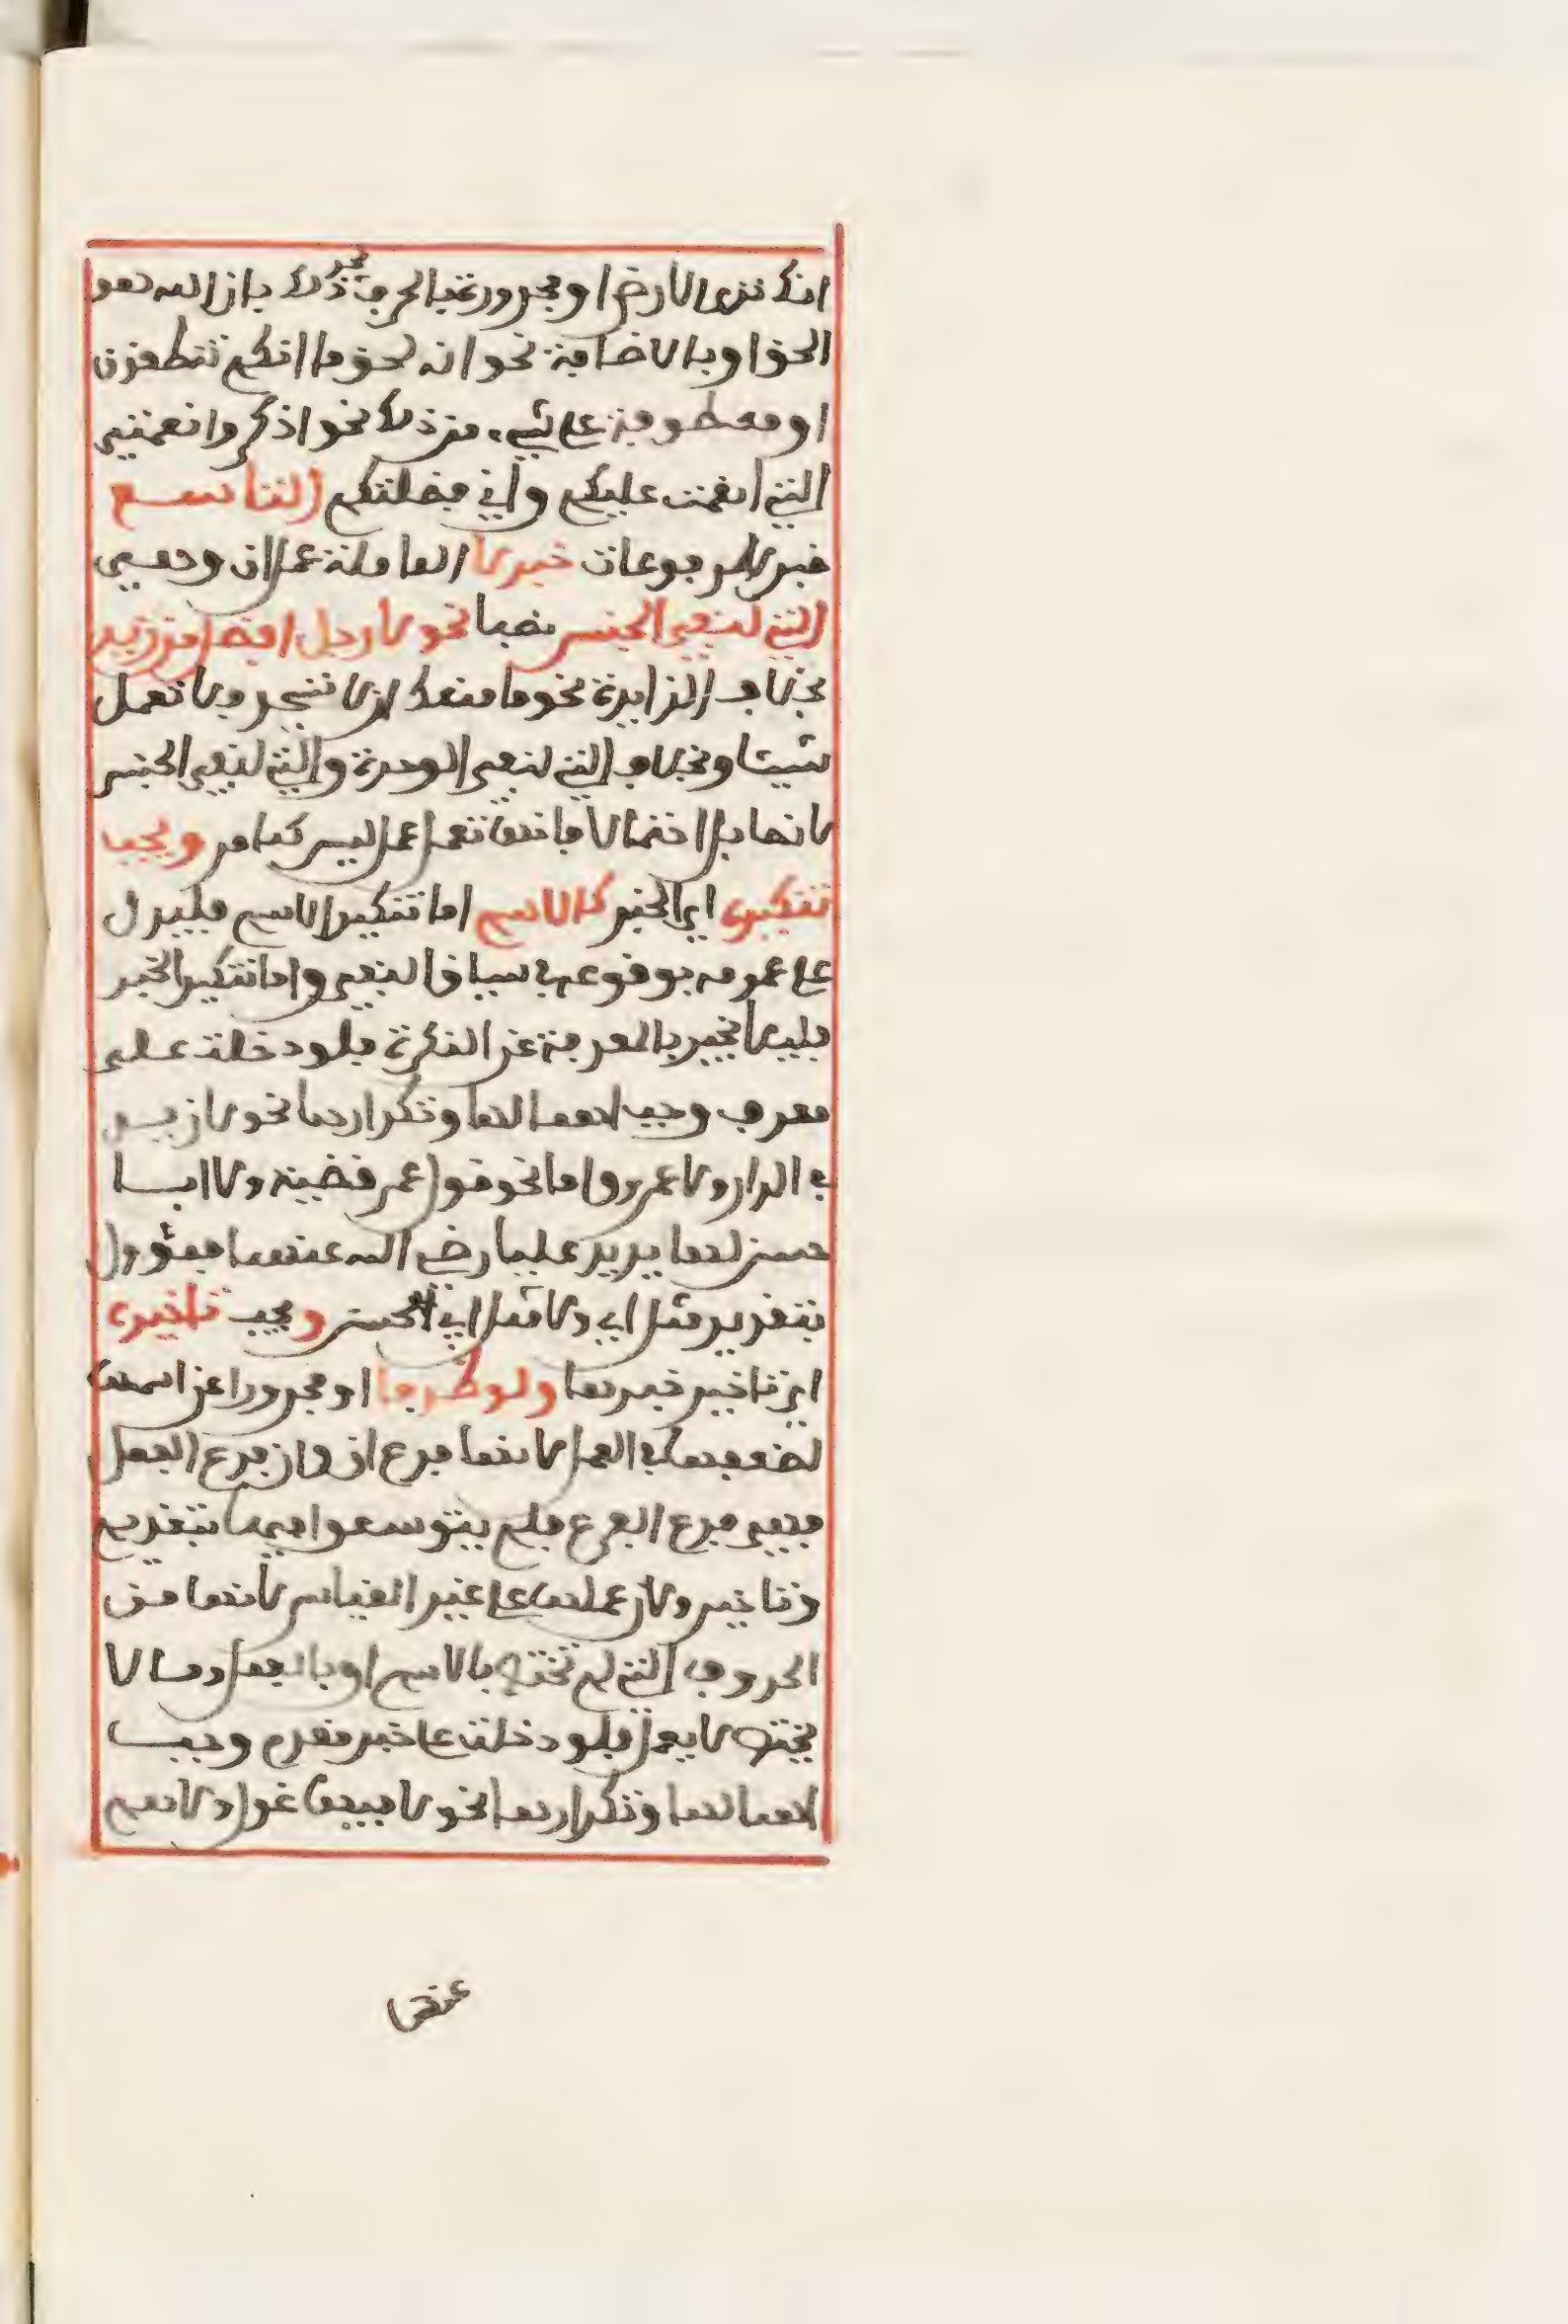 انك ترى الارض او مجرورة بالحرف نحو ذلك بان الله هو
الحق او بالاضافة نحو انه لحق ما انكم تنطقون
او معطوفة على شيء من ذلك نحو اذكروا نعمتي
التي انعمت عليكم واني فضلتكم التاسع
من المرفوعات خبر لا العاملة عمل ان وهي
التي لنفي الجنس نصا نحو لا رجل افضل من زيد
بخلاف الزايدة نحو ما منعك ان لا تسجد ولا تعمل
شيئا وبخلاف التي لنفي الوحدة والتي لنفي الجنس
لا نصا بل احتمالا فانها تعمل عمل ليس كما مر ويجب
تنكيره اي الخبر كالاسم اما تنكير الاسم فليدل
على عمومه بوقوعه في سياق النفي واما تنكير الخبر
فليلا نخبر بالمعرفة عن النكرة فلو دخلت على
معرف وجب اهمالها وتكرارها نحو لا زيد
في الدار ولا عمرو واما نحو قول عمر قضية ولا ابا
حسن لها يريد عليا رضي الله عنهما فمؤول
بتقدير مثل اي ولا مثل ابي الحسن ويجب تاخيره
اي تاخير خبرها ولو ظرفا او مجرورا عن اسمها
لضعفها في العمل لانها فرع ان وان فرع الفعل
فهي فرع الفرع فلم يتوسعوا فيها بتقديم
وتاخير ولان عملها على غير القياس لانها من
الحروف التي لم تختص بالاسم او بالفعل وما لا
يختص لا يعمل فلو دخلت على خبر مقدم وجب
اهمالها وتكرارها نحو لا فيها غول ولا هم
عنها